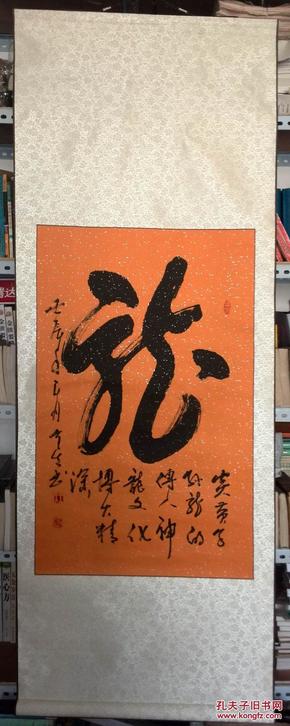 龙
炎黄子
孙龙的
传人神
龙文化
博大精
深
壬辰年
孔夫子旧书网
www.kongfz.com